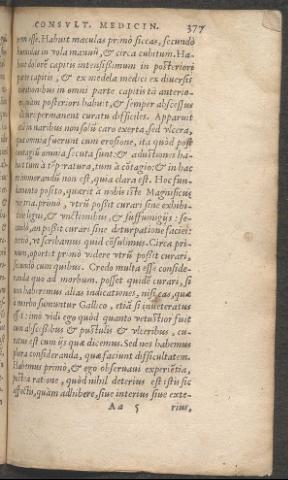 CONSVLT. MEDICIN. 377
esse. Habuit maculas primò siccas, secundò
humidas in vola manuũ, & circa cubitum. Ha
buit dolorẽ capitis intensissimum in posteriore
parte capitis, & ex medela medici ex diversis
omnibus in omni parte capitis tã anterio
quàm posteriori habuit, & semper abscessus
permanent curatu difficiles. Apparuit
in naribus non solũ caro exerta, sed vlcera,
quæ omnia fuerunt cum erosione, ita quòd post
omnia secuta sunt: & aductiones ha
tum à tẽperatura, tum à cõtagio: & in hac
immorandũ non est, quia clara est. Hoc fun
damento posito, quærit à nobis iste Magnificus
tria. primò, vtrũ possit curari sine exhibi
ligni, & vnctionibus, & suffumigijs: se
cundò, an possit curari sine deturpatione faciei:
tertiò, vt scribamus quid cõsulimus. Circa pri
mum, oportet primò videre vtrũ possit curari,
secundò cum quibus. Credo multa esse conside
randa quo ad morbum. posset quidẽ curari, si
non haberemus alias indicationes, nisi eas, quæ
à morbo sumuntur Gallico, etiã si inueteratus
est: imò vidi ego quòd quanto vetustior fuit
cum abscessibus & pustulis & vlceribus, cu
ratus est cum ijs quæ dicemus. Sed nos habemus
plura consideranda, quæ faciunt difficultatem.
Habemus primò, & ego obseruaui experiẽtia,
ratione, quòd nihil deterius est istis sic
affectis, quàm adhibere, siue interius siue exte-
Aa 5 rius,